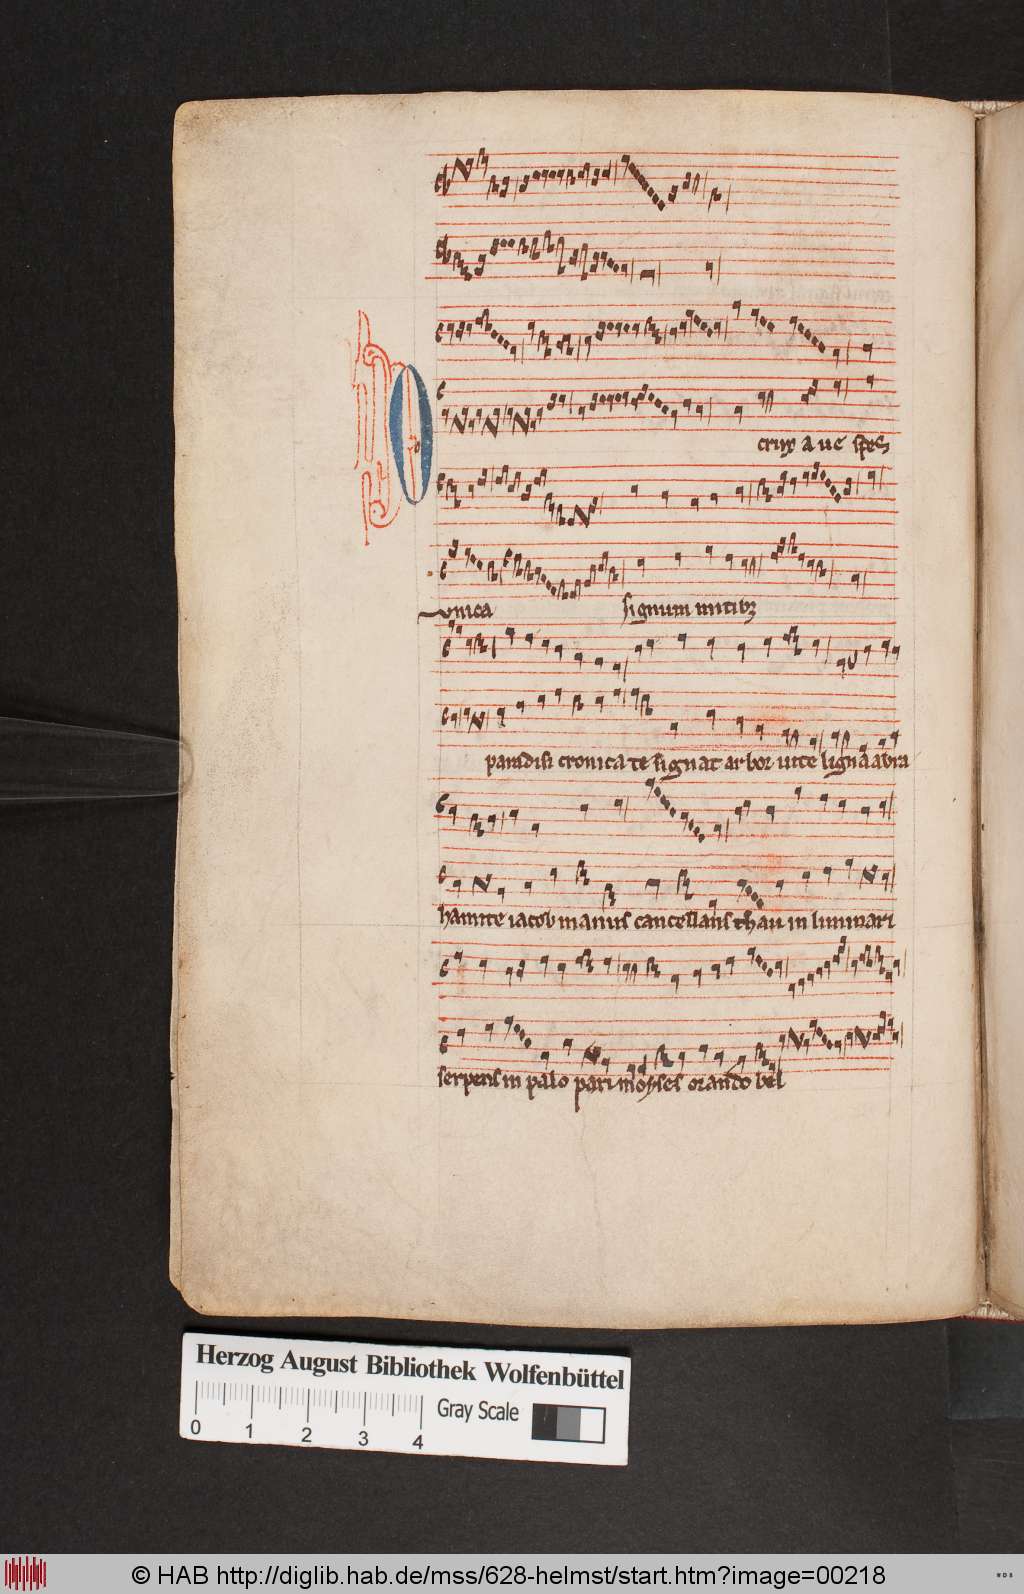 O crux aue spes
unica signum mitibꝫ
paradisi cronica te signat arbor uite ligna abra
hamite iacob manus cancellans thau in liminari
serpens in palo pari moyses orando bel
Herzog August Bibliothek Wolfenbüttel
Gray Scale
0 1 2 3 4
© HAB http://diglib.hab.de/mss/628-helmst/start.htm?image=00218